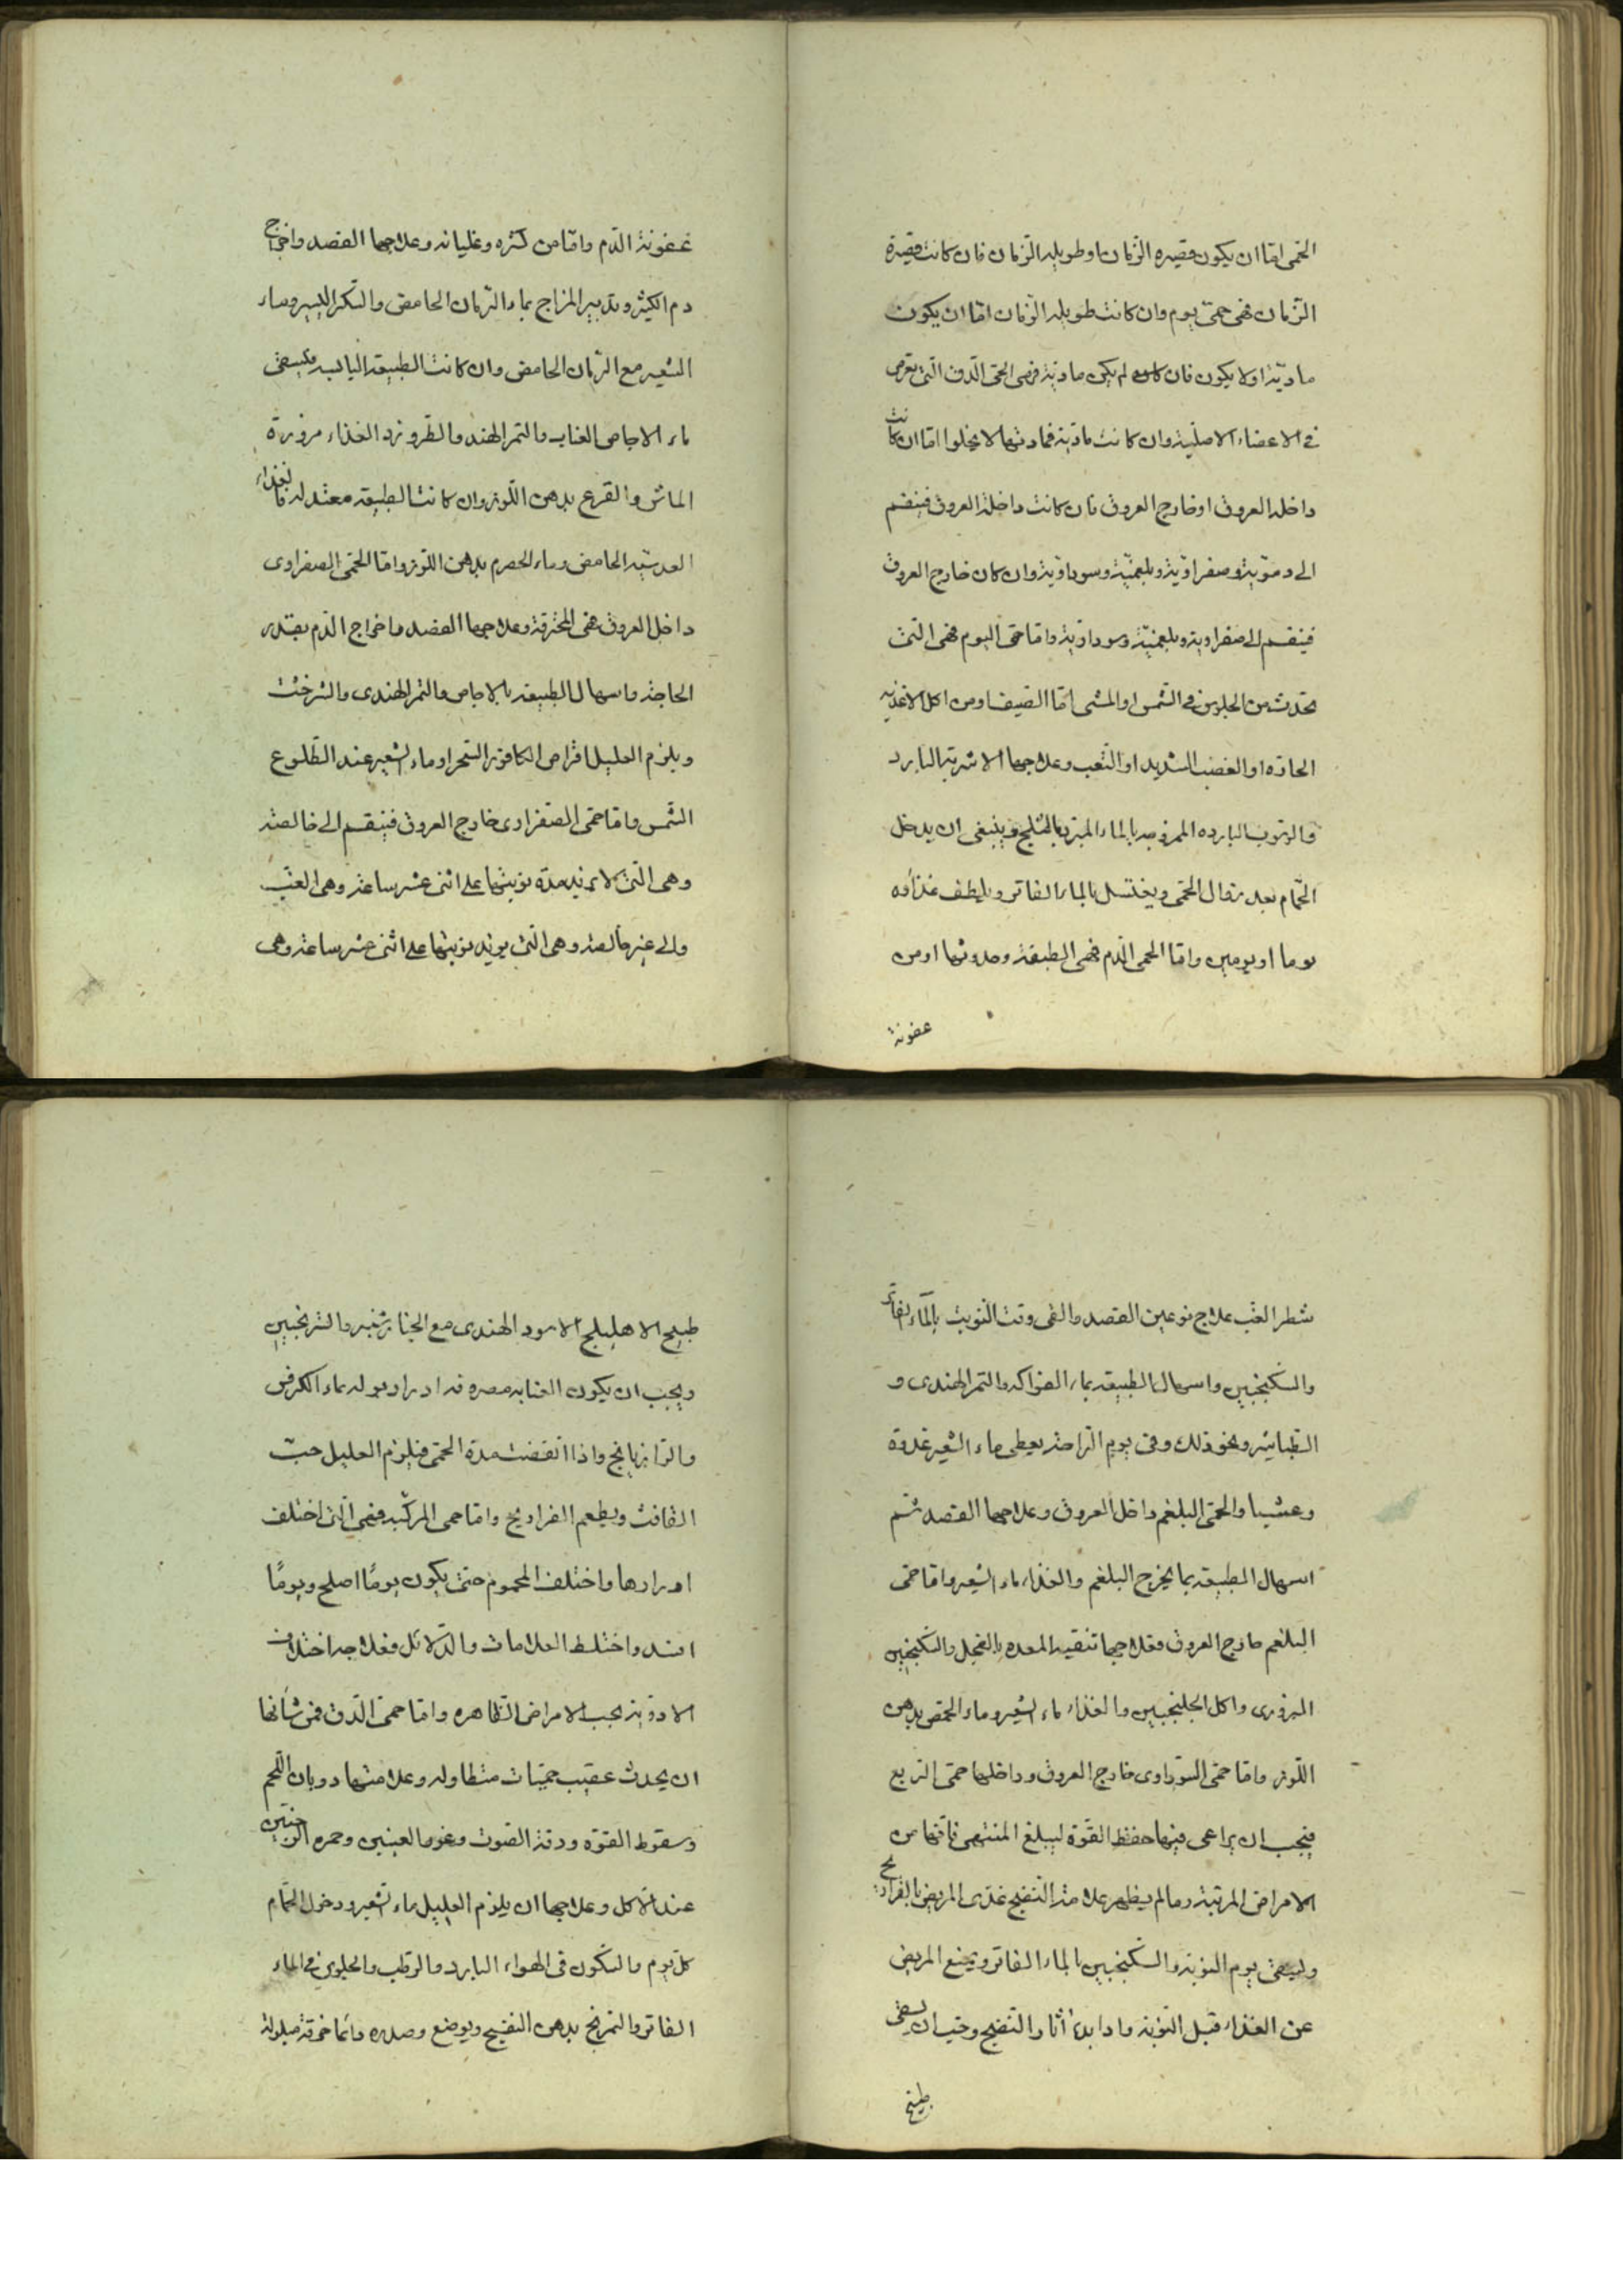 الحمى امّا ان يكون قصيره الزّمان او طويله الزّمان فان كانت قصيرة
الزّمان فهى حمّى يوم وان كانت طويله الزّمان امّا ان يكون
ماديّة اولا يكون فان لم يكن مادية فهى الحمى الدّق التى تعرض
فى الاعضاء الاصليّة وان كانت مادّية فمادتها لا يخلوا امّا ان كانت
داخله العروق او خارج العروق فان كانت داخلة العروق فينقسم
الى دمويّة وصفراويّة وبلغميّة وسوداويّة وان كان خارج العروق
فينقسم الى صفراوية وبلغميّة وسوداويّة وامّا حمّى اليوم فهى التى
تحدث من الجلوس فى الشّمس او المشى امّا الصّيف او من اكل الاغذيه
الحادّه او الغضب الشديد او التّعب وعلاجها الاشربة البارد
بالماء المبرّد بالثلج وينبغى ان يدخل
الحمّام بعد زوال الحمّى ويغتسل بالماء الفاتر ويلطف غذاوه
يوما او يومين وامّا الحمى الدّم فهى المطبقة وحدوثها اومن
عفونة
عفونة الدّم وامّا من كثره وغليانه وعلاجها الفصد واخراج
دم الكثير وتدبير المزاج بماء الرّمان الحامض والسّكر اليسير وماء
الشعير مع الرّمان الحامض وان كانت الطبيعة اليابسه فيسقى
ماء الاجاص العناب والتمر الهند والطرو زد الغذاء مزورة
الماش والقرع بدهن اللّوز وان كانت الطبيعه معتدله فالغذاء
العدسيّه الحامض وماء الحصرم بدهن اللّوز وامّا الحمّى الصفراوى
داخل العروق فهى المحرقة وعلاجها الفصد واخراج الدّم بقدر
الحاجة واسهال الطبيعه بالاجاص والتمر الهندى والشرخشت
ويلزم العليل اقراص الكافور السّحر او ماء الشعير عند الطّلوع
الشّمس وامّا حمّى الصّفراوى خارج العروق فينقسم الى خالصة
وهى التى لا تزيد مدّة نوبتها على اثنى عشر ساعة وهى الغبّ
والى غير خالصة وهى الّتى يزيد نوبتها على اثنى عشر ساعة وهى
شطر الغبّ علاج نوعين الفصد والقى وقت النّوبت بالمآء الفاتر
والسكنجبين واسهال الطبيعه بماء الفواكه والتمر الهندى و
الطباشير ونحو ذلك وفى يوم الرّاحة يعطى ماء الشعير غدوة
وعشيا والحمّى البلغم داخل العروق وعلاجها الفصد ثم
اسهال الطبيعه بما يخرج البلغم والغذاء ماء الشعير وامّا حمّى
البلغم خارج العروق فعلاجها تنقية المعده بالفجل والسّكنجبين
البزورى واكل الجلنجبين والغذاء ماء الشعير وماء الحمّص بدهن
اللّوز وامّا حمّى السّوداوى خارج العروق وداخلها حمّى الربع
فيجب ان يراعى فيها حفظ القوّة ليبلغ المنتهى فانّها من
الامراض المزمنة وما لم يظهر علامة النّضج غذى المريض بالفراريج
وليسقى يوم النوبة والسكنجبين الماء الفاتر ويمنع المريض
عن الغذاء قبل النّوبة واذا بدء اثار النّضج وجب ان يسقى
طبيخ
طبيخ الاهليلج الاسود الهندى مع الخيار شنبر والترنجبين
ويجب ان يكون العنايه مصره فى ادرار بوله بماء الكرفس
والرّازيانج واذا انقضت مدّة الحمّى فيلزم العليل حبّ
الغافت ويطعم الفراريج وامّا حمى المركّبه فهى الّتى اختلف
ادرارها واختلف المحموم حتى يكون يومًا اصلح ويومًا
افسد واختلط العلامات والدّلائل فعلاجه اختلاف
الادوية بحسب الامراض الظّاهره وامّا حمّى الدّق فمن شأنها
ان يحدث عقيب حمّيات متطاوله وعلامتها ذوبان اللّحم
وسقوط القوّه ودقة الصّوت وغور العينين وحمره الوجنتين
عند الاكل وعلاجها ان يلزم العليل ماء الشعير ودخول الحمّام
كلّ يوم والسّكون فى الهواء البارد والرّطب والجلوس فى الماء
الفاتر والتمريخ بدهن البنفسج ويوضع وصدره دائما خرقة مبلولة